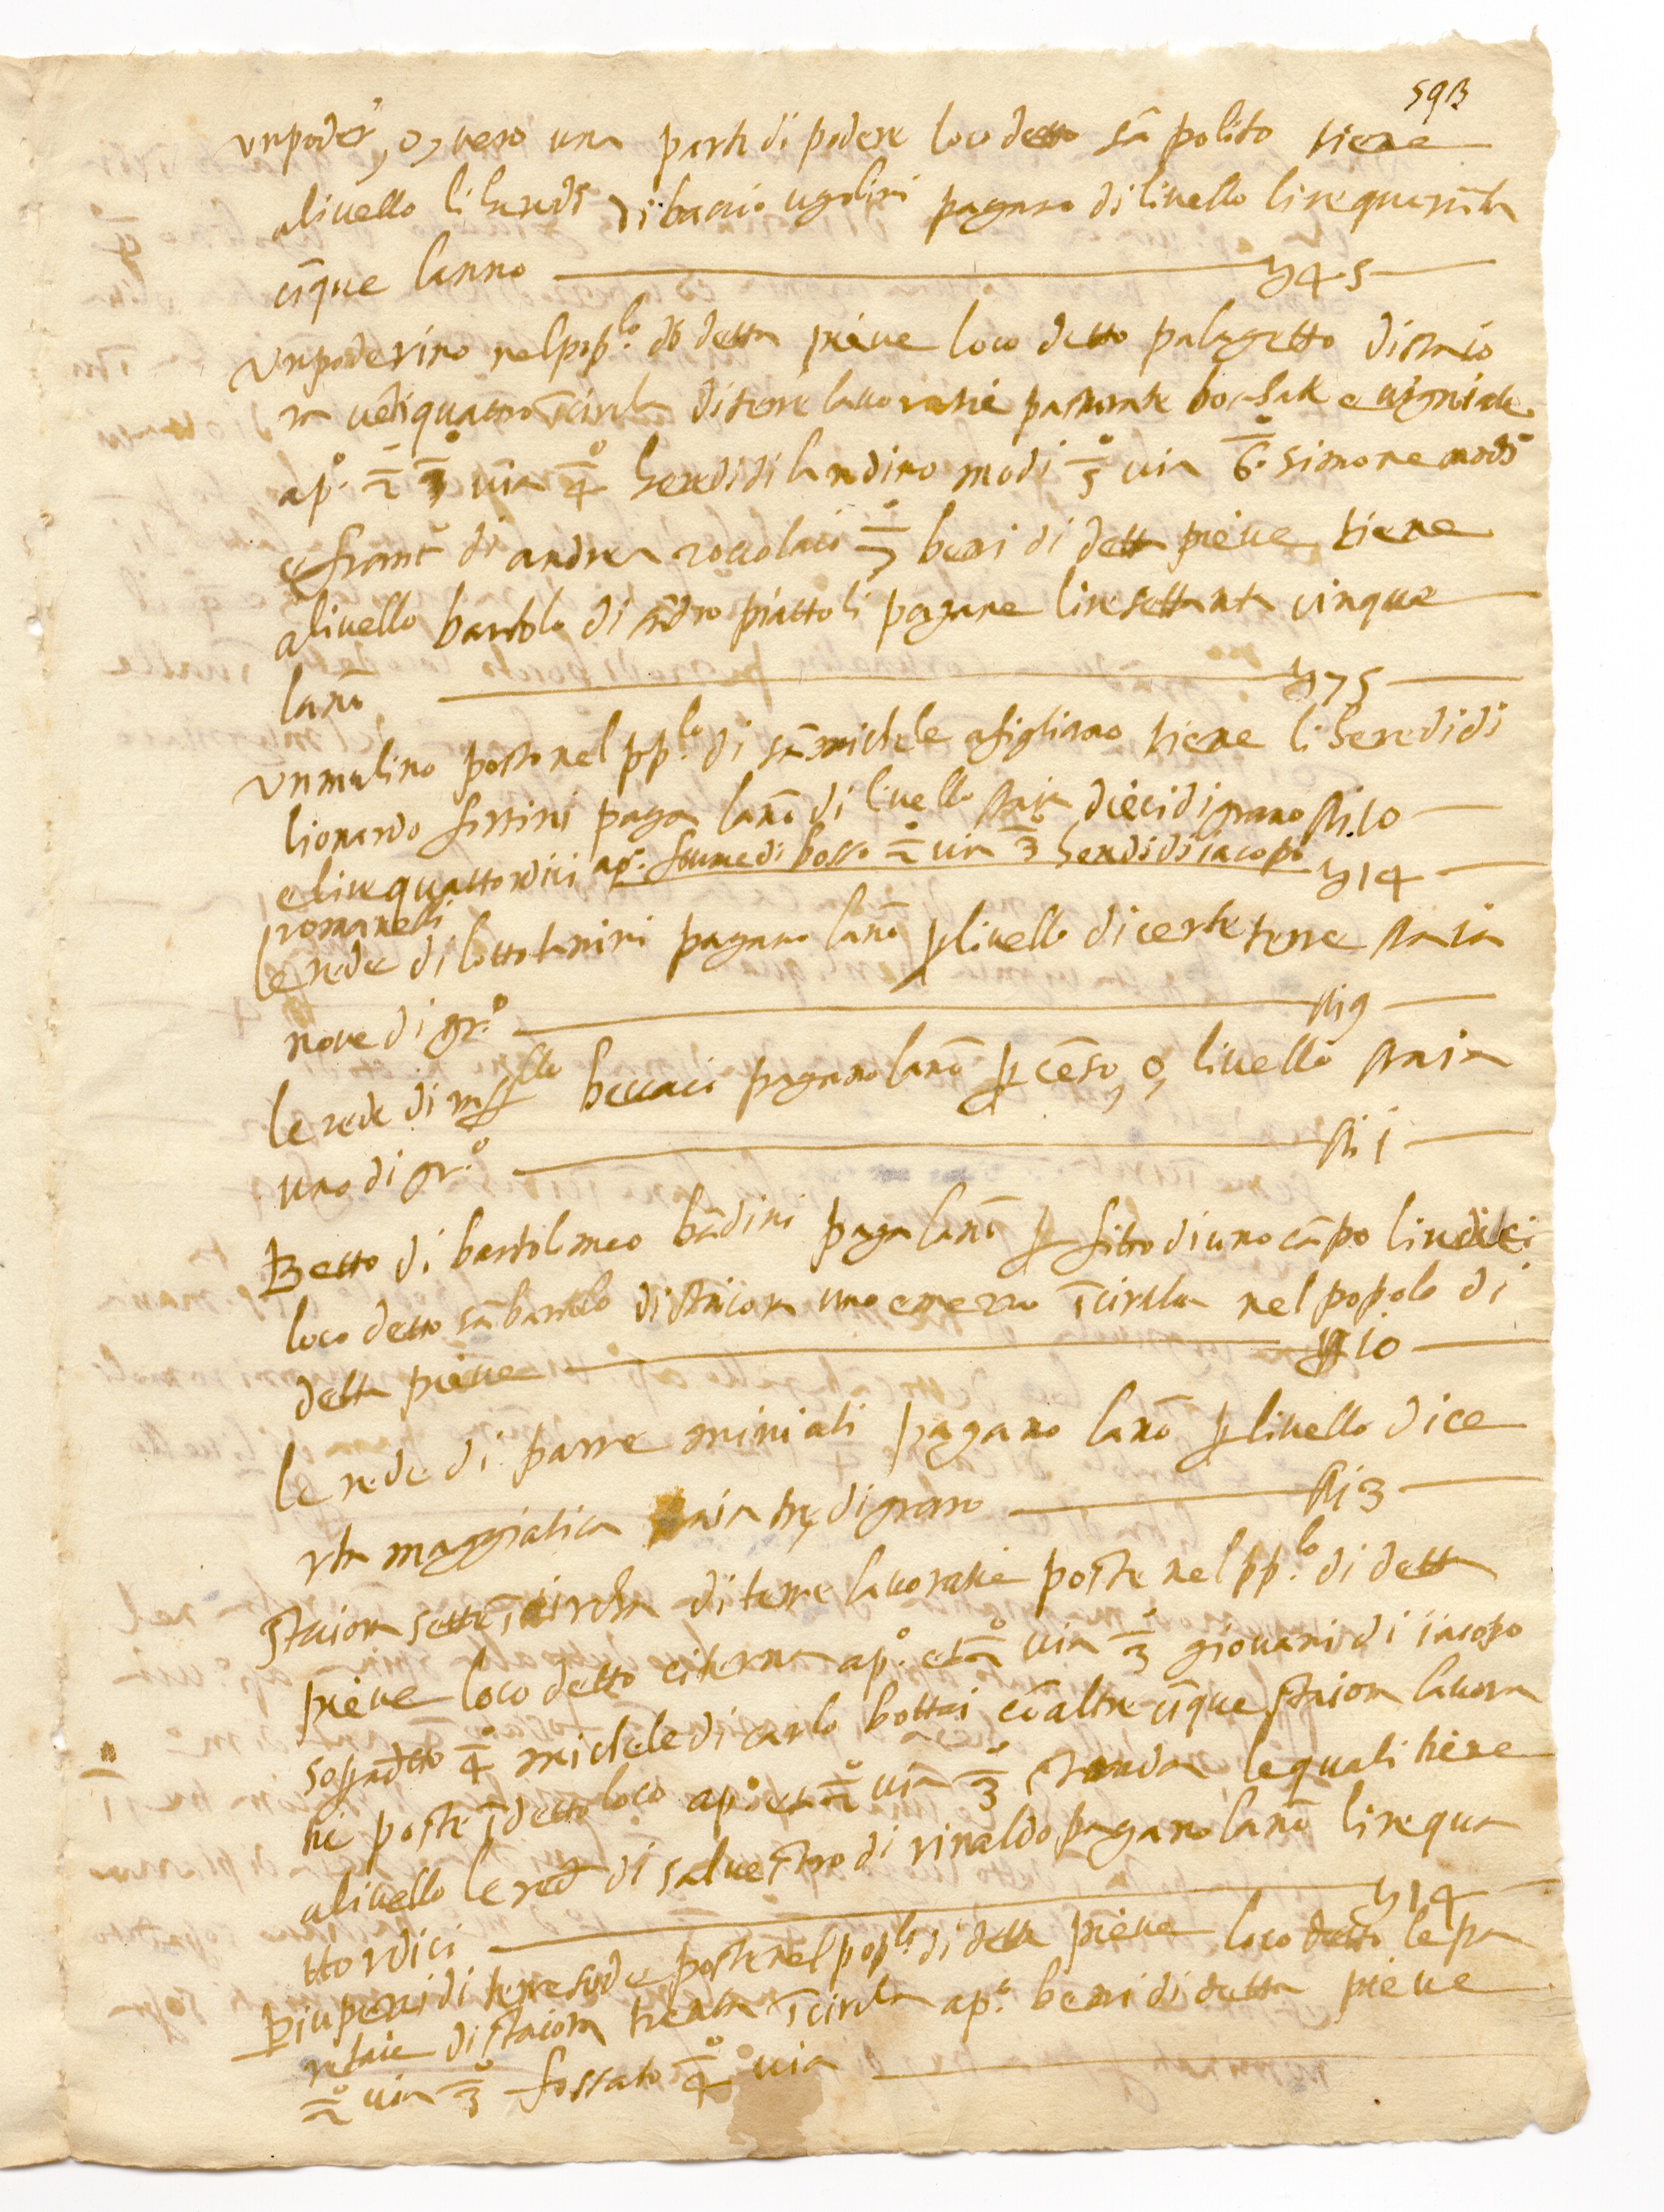 593
vnpoder, o, vero una parte di podere loco detto sā polito tiene
aliuello li heredi di baccio ugolini pagano di liuello lire quarāta
cīque lanno ——— ɥ 45 —
Vnpoderino nelpop.lo di detta pieue loco detto palagetto distaio
ra vētiquattro ī circha diterre lauoratie pasturate boschate e vigniate
ap.o 2 3 via 4 heredi di landino modi 5 via 6 simone modi
e franc.o di andrea 7 beni di detta pieue tiene
aliuello bartolo di sādro piattoli pagane lire settanta cinque
lanō ——— ɥ 75 —
Vnmulino posto nel pop.lo di sā michele afigliano tiene li heredi di
lionardo fortini paga lanō di liuello staia dieci di grano sti. 10 —
e lire quattordici ap.o fiume di bosso 2 via 3 heredi di iacopo ɥ 14 —
romanelli
le rede di lotto tanini pagano lanō p liuello di certe terre staia
noue di gr.o ——— sti 9 —
le rede di beccaci pagano lanō p cēso, o, liuello staia
uno di gr.o ——— sti 1 —
Betto di bartolomeo bādini paga lanō p fitto di uno cāpo lire dieci
loco detto sā bartolo di staiora uno emezzo ī circha nel popolo di
detta pieue ——— ɥ 10 —
le rede di parre miniati pagano lanō p liuello dice
rta maggiatica staia tre di grano ——— sti 3 —
Staiora sette ī circha di terre lauoratie poste nel pp.lo di detta
pieue loco detto citerna ap.o et 2 via 3 giouani di iacopo
sopradetto 4 michele di carlo bottai cō altre cīque staiora lauora
tie poste ī detto loco ap.o et 2 via 3 strada lequali tiene
aliuello le rede di saluestro di rinaldo pagano lanō lire qua
ttordici ——— ɥ 14 —
Piu pezzi di terre sode poste nel pop.lo di detta pieue loco detto lepra
rtaie di staiora trenta ī circha ap.o beni di detta pieue
2 via 3 fossato 4 via ———